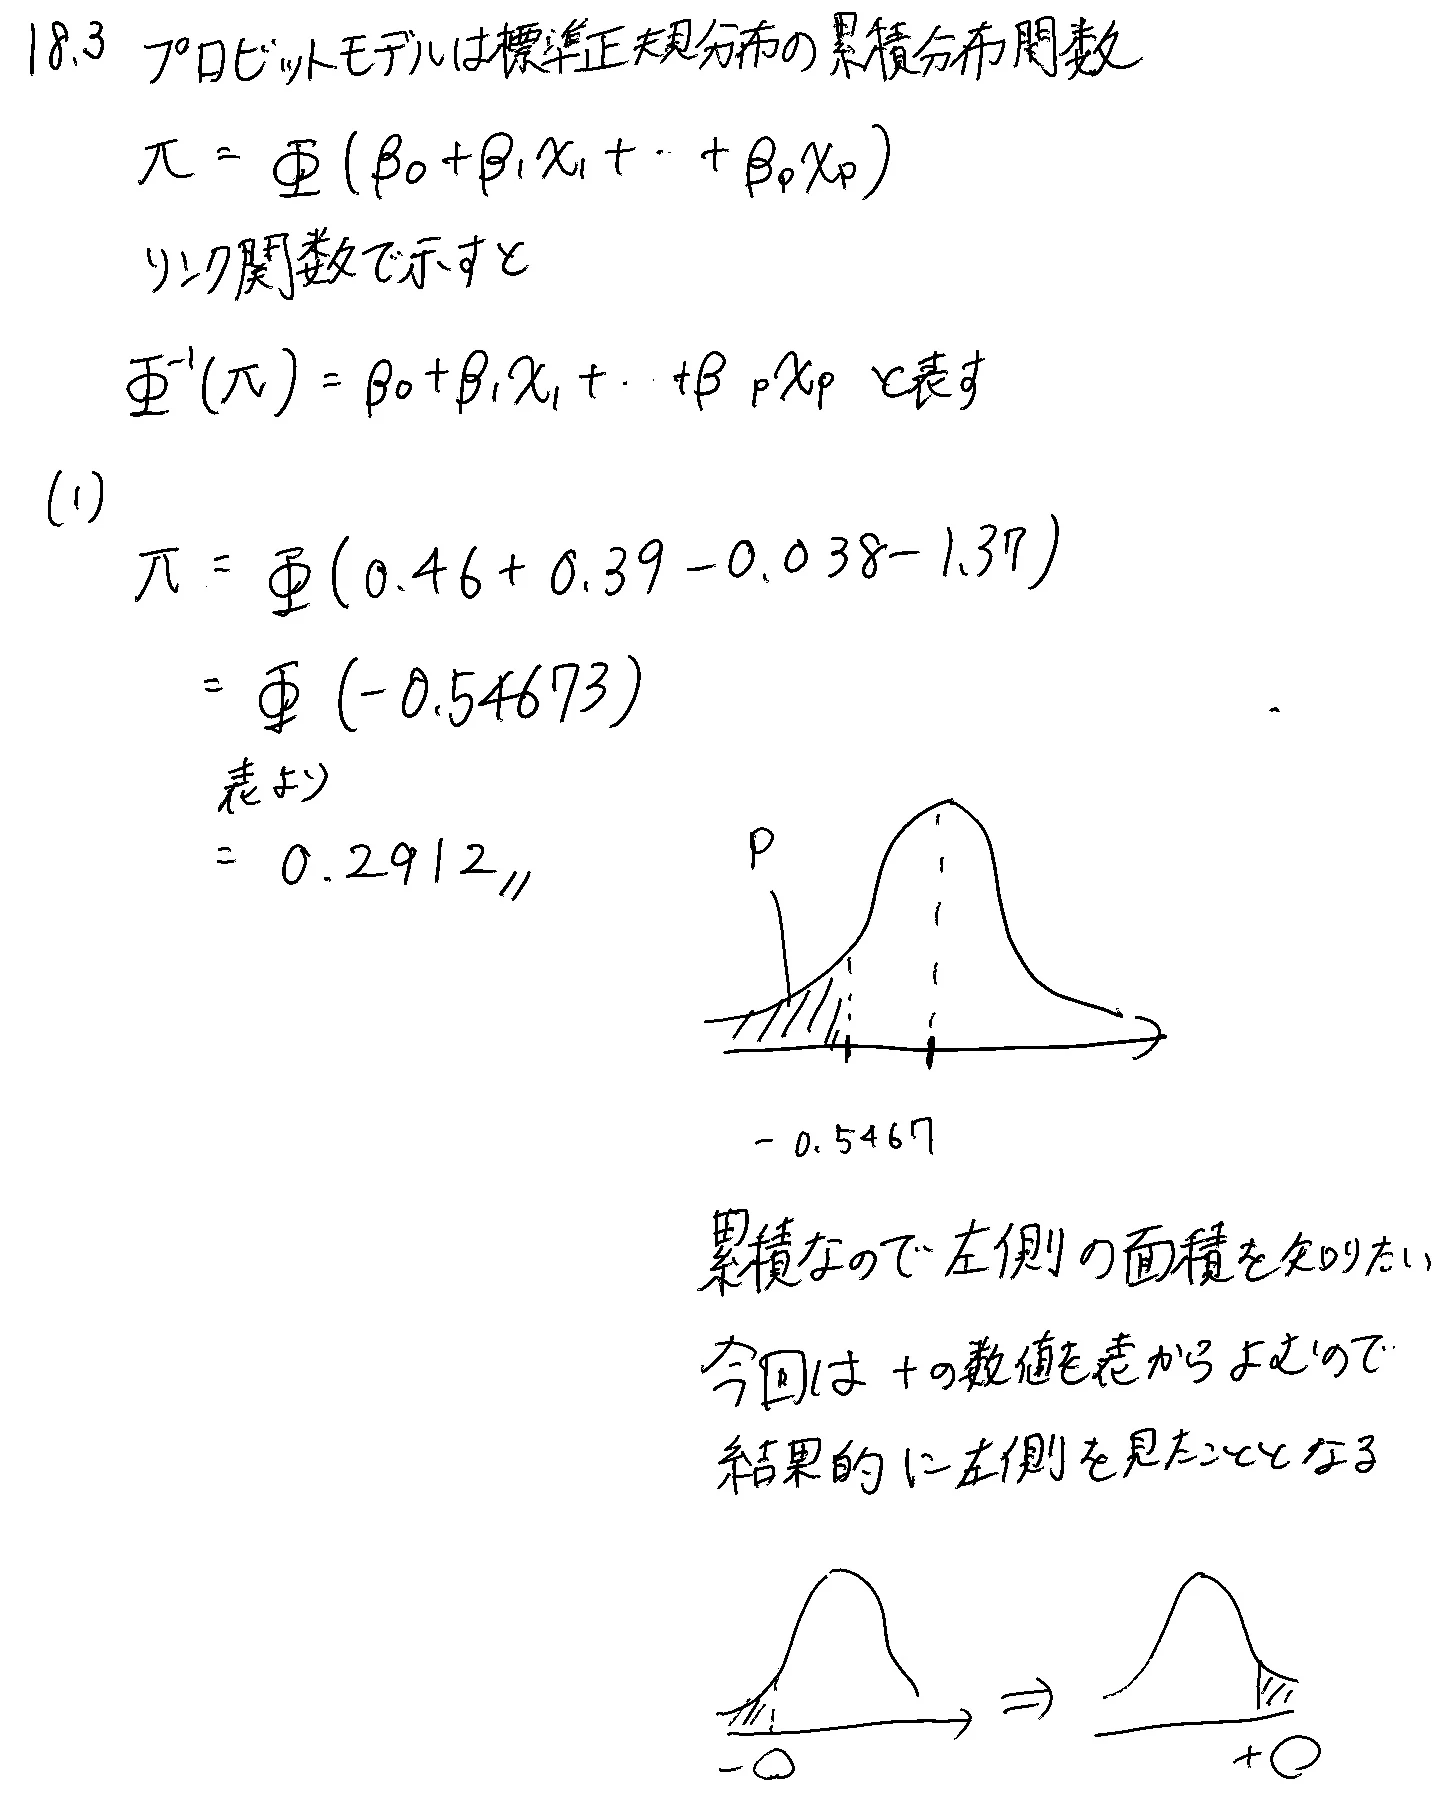 18.3 プロビットモデルは標準正規分布の累積分布関数
π = Φ(β₀+β₁x₁+‥+βₚxₚ)
リンク関数で示すと
Φ⁻¹(π) = β₀+β₁x₁+‥+βₚxₚ と表す
(1)
π = Φ(0.46+0.39-0.038-1.37)
= Φ(-0.54673)
表より
= 0.2912〃
P
-0.5467
累積なので左側の面積を知りたい
今回は+の数値を表からよむので
結果的に左側を見たこととなる
⇒
-○
+○